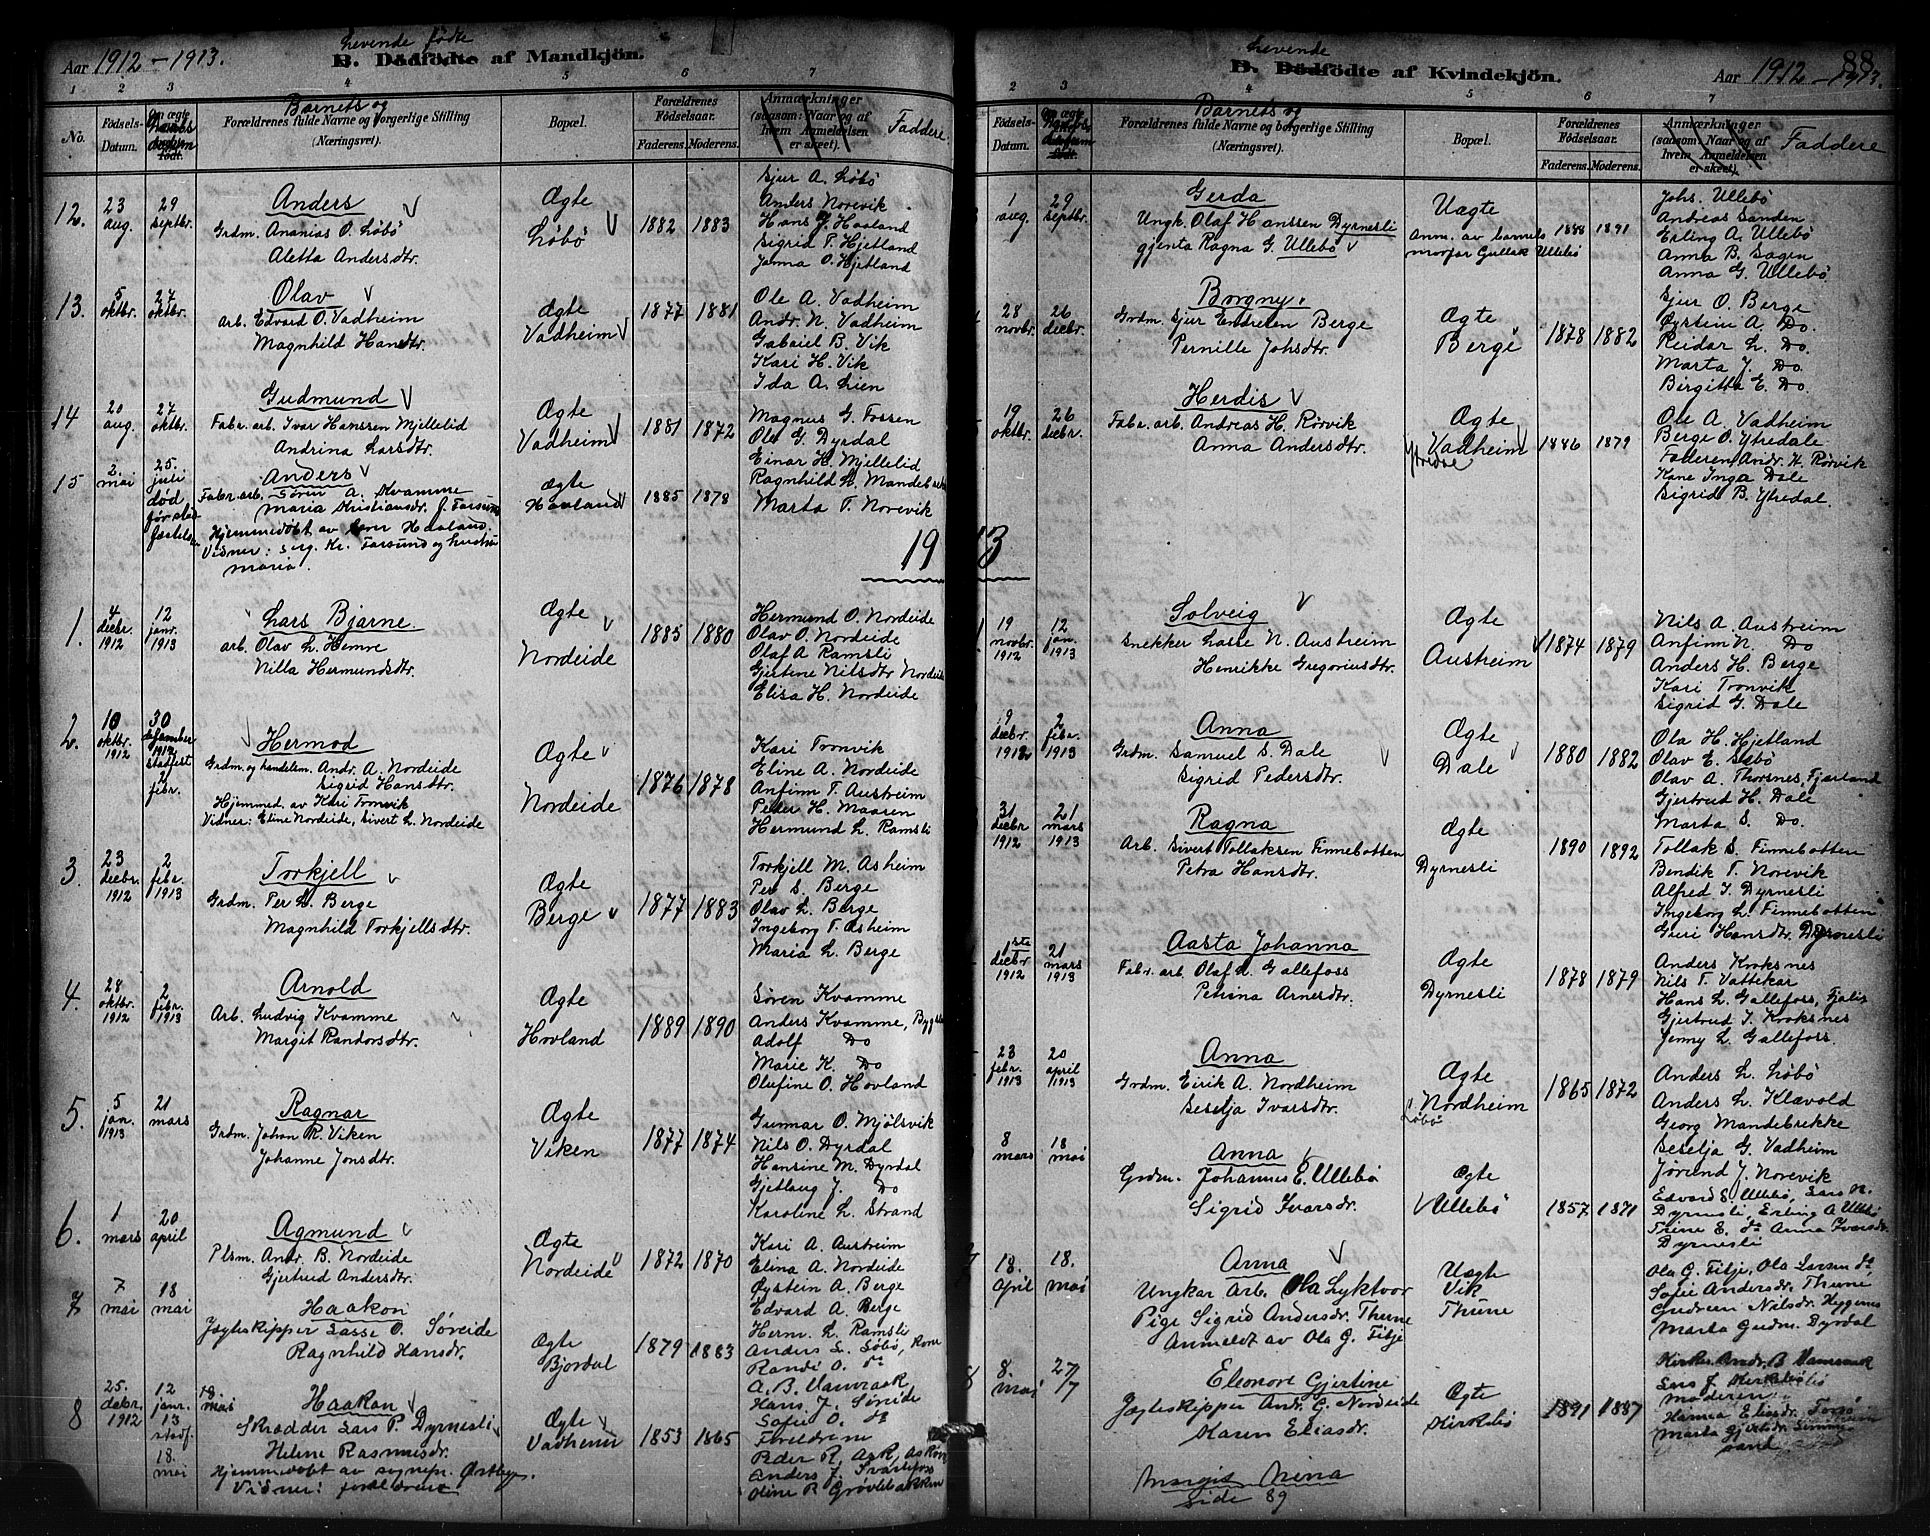 Aar 1912–1913.
levende fødte
B. Dödfödte af Mandkjön.
1 2 3 4 5 6 7
No.
Födsels-Datum.
Daabsdatum
Barnets og
Forældrenes fulde Navne og borgerlige Stilling
(Næringsvei).
Bopæl.
Forældrenes Födselsaar.
Faderens. Moderens.
Anmærkninger
(saasom: Naar og af
hvem Anmeldelsen
er skeet).
Faddere
12. 23 aug. 29 septbr.
Anders
Grdm. Ananias O. Løbø
Aletta Andersdtr.
Ægte
Løbø
1882 1883
Sjur A. Løbø
Anders Norevik
Hans J. Haaland
Sigrid T. Hjetland
Janna O. Hjetland
13. 5 oktbr. 27 oktbr.
Olav
Arb. Edvard O. Vadheim
Magnhild Hansdtr.
Ægte
Vadheim
1877 1881
Ole A. Vadheim
Andr. N. Vadheim
Gabriel B. Vik
Kari H. Vik
Ida A. Lien
14 20 aug. 27 oktbr.
Gudmund
Fabr. arb. Ivar Hanssen Mjellelid
Andrina Larsdtr.
Ægte
Vadheim
1881 1872
Magnus G. Fossen
Ole G. Dyrdal
Einar H. Mjellelid
Ragnhild L. Mandebrekke
Marta T. Norevik
15 2. mai 25. juli
død før stadfæstelsen
Anders
Fabr. arb. Søren A. Kvamme
Maria Kristiansdr. J. Farsund
Hjemmedøbt av Haaland.
Vidner: Serg. Kr. Farsund og hustru
Maria.
Ægte
Hovland
1885 1878
1913
1. 4 decbr. 1912 12 janr. 1913
Lars Bjarne
arb. Olav L. Hemre
Nilla Hermundsdtr.
Ægte
Nordeide
1885 1880
Hermund O. Nordeide
Olav O. Nordeide
Olaf A Ramsli
Gjertine Nilsdtr Nordeide
Elisa H. Nordeide
2. 10 oktbr. 1912 30 1912 stadfest 2 febr.
Hermod
Grdm. og handelsm. Andr. A. Nordeide
Sigrid Hansdtr.
Hjemmed. av Kari Tronvik
Vidner: Eline Nordeide, Sivert L. Nordeide
Ægte
Nordeide
1876 1878
Kari Tronvik
Eline A. Nordeide
Anfinn T. Austreim
Peder H. Maaren
Hermund L. Ramsli
3. 23 decbr. 1912 2 febr. 1913
Torkjell
Grdm. Per L. Berge
Magnhild Torkjellsdtr.
Ægte
Berge
1877 1883
Torkjell M. Asheim
Per S. Berge
Olav L. Berge
Ingeborg T. Asheim
Maria L. Berge
4. 28 oktbr. 1912 2 febr. 1913
Arnold
Arb. Ludvig Kvamme
Margit Randorsdtr.
Ægte
Hovland
1889 1890
Søren Kvamme
Anders Kvamme,
Adolf Do
Marie K. Do
Olufine O. Hovland
5. 5 jan. 1913 21 mars
Ragnar
Grdm. Johan R. Viken
Johanne Jonsdtr.
Ægte
Viken
1877 1874
Gunnar O. Mjølsvik
Nils O. Dyrdal
Hansine M. Dyrdal
Gjetlaug J. Do
Karoline L. Strand
6. 1 mars 20 april
Agmund
Plsm. Andr. B. Nordeide
Gjertrud Andersdtr.
Ægte
Nordeide
1872 1870
Kari A. Austreim
Elina A. Nordeide
Øystein A. Berge
Edvard A. Berge
Herm. L. Ramsli
7 7 mai 18 mai
Haakon
Jagteskipper Lasse O. Søreide
Ragnhild Hansdr.
Ægte
Bjordal
1879 1883
Anders L. Løbø,
Randi O. do
A. B. Vamraak
Hans J. Søreide
Sofie O. do
8 25. debr. 1912 12 janr. 13 stadf. 18. mai
18 mai
Haakon
Skrædder Lars P. Dyrnesli
Helene Rasmusdr.
Hjemmedøbt av sognepr. Østbye.
Vidner: forældrene
Ægte
Vadheim
1853 1865
Forældrene
Peder R. Ask, Askøen
Anders J. Svartefoss
Oline R Grøvlebakken
88
levende
B. Dödfödte af Kvindekjön.
Aar 1912–1913.
2 3 4 5 6 7
Födsels-Datum.
Barnets og
Forældrenes fulde Navne og borgerlige Stilling
(Næringsvei).
Bopæl.
Forældrenes Födselsaar.
Faderens. Moderens.
Anmærkninger
(saasom: Naar og af
hvem Anmeldelsen
er skeet).
Faddere
1 aug. 29 septbr.
Gerda
Ungk. Olaf Hanssen Dyrnesli
gjenta Ragna G. Ullebø
Uægte
Anm. av barnets
morfar Gullak Ullebø
1888 1891
Johs. Ullebø
Andreas Sanden
Erling A. Ullebø
Anna B. Sagen
Anna G. Ullebø
28 novbr. 26 decbr.
Borgny
Grdm. Sjur Endresen Berge
Pernille Johsdtr.
Ægte
Berge
1878 1882
Sjur O. Berge
Øystein A. Do.
Reidar L. Do.
Marta J. Do
Birgitta E. Do.
19 oktbr. 26 decbr.
Herdis
Fabr. arb. Andreas H. Rørvik
Anna Andersdtr.
Ægte
Vadheim
1886 1879
Ole A. Vadheim
Berge O. Ytredale
Faderen Andr. H. Rørvik
Kone Inga Dale
Sigrid B. Ytredal.
19 novbr. 1912 12 jan. 1913
Solveig
Snekker Lasse N. Austreim
Henrikke Gregoriusdtr.
Ægte
Austreim
1874 1879
Nils A. Austreim
Anfinn N. Do
Anders H. Berge
Kari Tronvik
Sigrid G. Dale
9 decbr. 1912 2 febr. 1913
Anna
Grdm. Samuel S. Dale
Sigrid Pedersdtr.
Ægte
Dale
1880 1882
Ola H. Hjetland
Olav E. Løbø
Olav A. Thorsnes, Fjærland
Gjertrud H. Dale
Marta S. Do.
31 decbr 1912 21 mars 1913
Ragna
Arb. Sivert Tollaksen Finnebotten
Petra Hansdtr.
Ægte
Dyrnesli
1890 1892
Tollak S. Finnebotten
Bendik T. Norevik
Alfred I. Dyrnesli
Ingeborg L. Finnebotten
Guri Hansdtr. Dyrnesli
1ste decbr 1912 21 mars 1913
Aasta Johanna
Fabr. arb. Olaf L. Gallefoss
Petrina Arnesdtr.
Ægte
Dyrnesli
1878 1879
Anders Kroksnes
Nils T. Vattekar
Hans L. Gallefoss, Fjaler
Gjertrud I. Kroksnes
Jenny L. Gallefoss.
23 febr. 1913 20 april 1913
Anna
Grdm. Eirik A. Nordheim
Seselja Ivarsdtr.
Ægte
Nordheim
Løbø
1865 1872
Anders L. Løbø
Anders L. Klævold
Georg Mandebrekke
Seselja G. Vadheim
Jørund J. Norevik
8 mars 18 mai
Anna
Grdm. Johannes E. Ullebø
Sigrid Ivarsdr.
Ægte
Ullebø
1857 1871
Edvard S. Ullebø, Lars N.
Dyrnesli, Erling A Ullebø
Trine E. do Anna Ivarsdr.
Dyrnesli
18. april 18. mai
Anna
Ungkar Arb. Ola Lyktvor
Pige Sigrid Andersdr. Thune
Anmeldt av Ola G. Fitje
Uægte
Vik
Thune
Ola G. Fitje, Ola Larsen do
Sofie Andersdr. Thune
Gudrun Nilsdr. Hygenes
Marta Gudm. Dyrdal
8. mai 27/7
Eleonore Gjertine
Jagteskipper Andr. G. Nordeide
Karen Eliasdr.
Ægte
Kirkebø
1891 1887
Kirkes. Andr. B Vamraak
Lars J. Kirkebø
Moderen
Hanna Eliasdr.
Marta Gjertsdr.
Margit Nina
Side 89